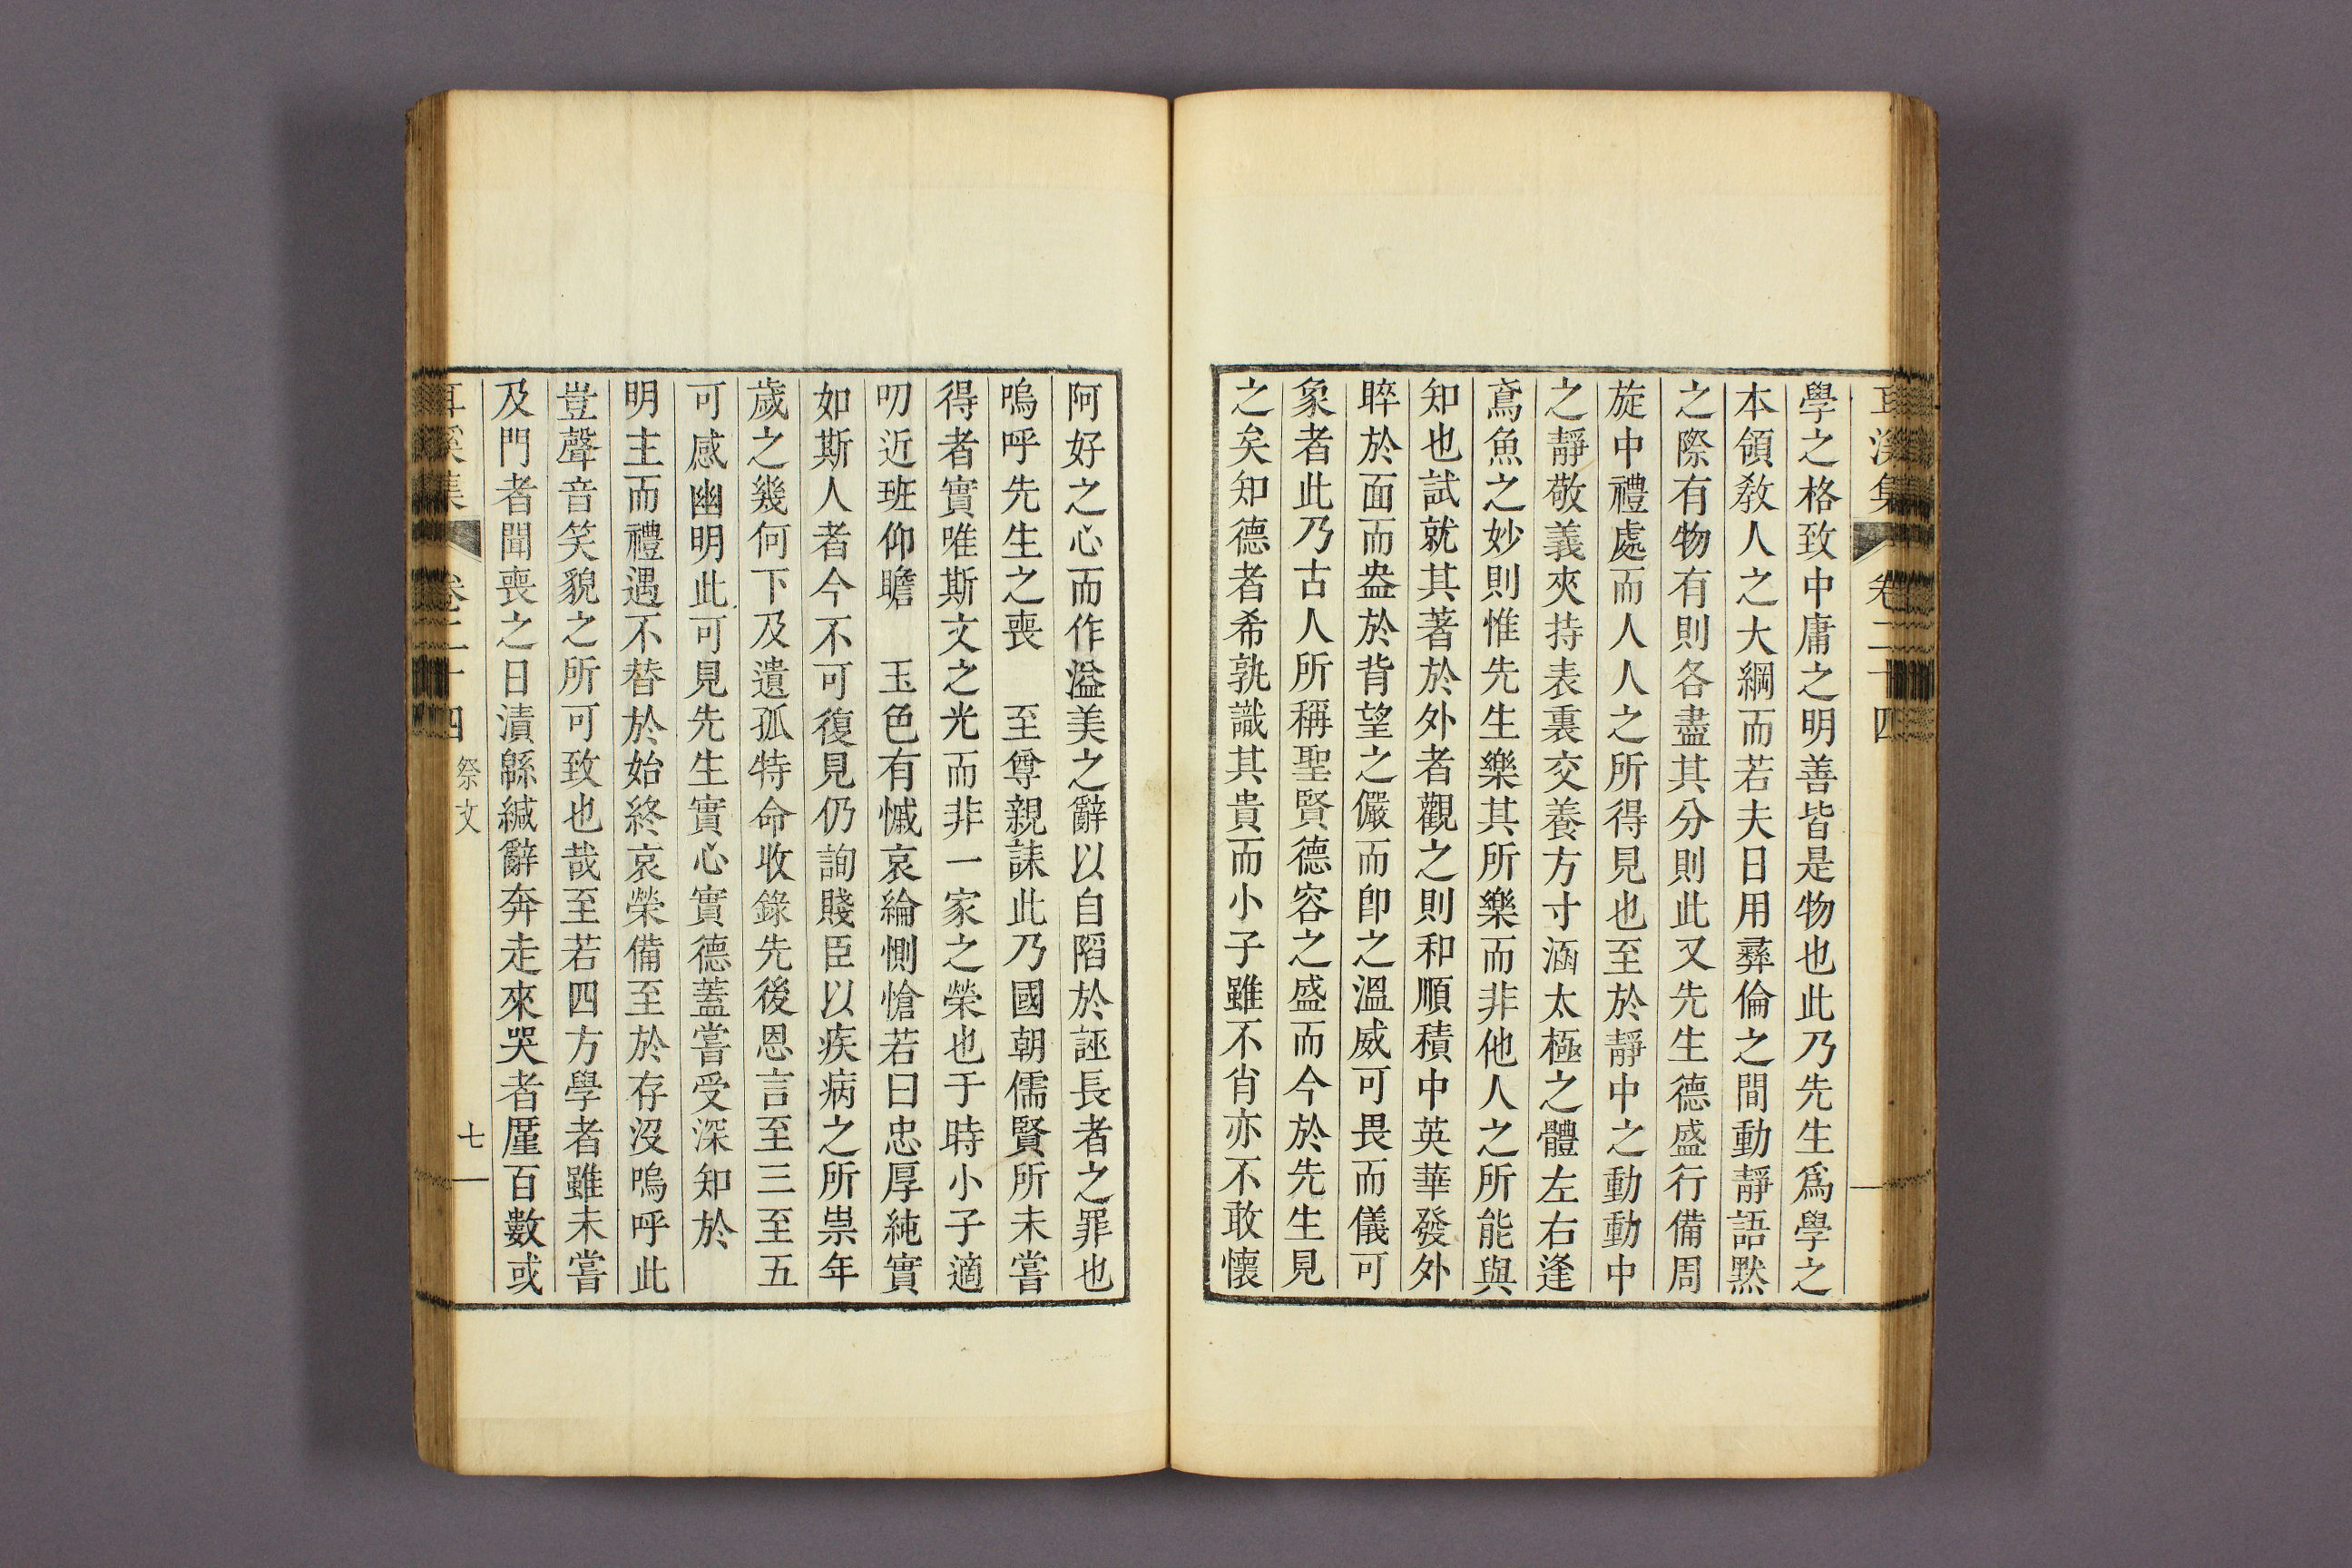 耳溪集 卷二十四
學之格致中庸之明善皆是物也此乃先生爲學之
本領敎人之大綱而若夫日用彝倫之間動靜語黙
之際有物有則各盡其分則此又先生德盛行備周
旋中禮處而人人之所得見也至於靜中之動動中
之靜敬義夾持表裏交養方寸涵太極之體左右逢
鳶魚之妙則惟先生樂其所樂而非他人之所能與
知也試就其著於外者觀之則和順積中英華發外
睟於面而盎於背望之儼而卽之溫威可畏而儀可
象者此乃古人所稱聖賢德容之盛而今於先生見
之矣知德者希孰識其貴而小子雖不肖亦不敢懷
阿好之心而作溢美之辭以自陷於誣長者之罪也
嗚呼先生之喪 至尊親誄此乃國朝儒賢所未嘗
得者實唯斯文之光而非一家之榮也于時小子適
叨近班仰瞻 玉色有慽哀綸惻愴若曰忠厚純實
如斯人者今不可復見仍詢賤臣以疾病之所祟年
歲之幾何下及遺孤特命收錄先後恩言至三至五
可感幽明此可見先生實心實德蓋嘗受深知於
明主而禮遇不替於始終哀榮備至於存沒嗚呼此
豈聲音笑貌之所可致也哉至若四方學者雖未嘗
及門者聞喪之日漬緜緘辭奔走來哭者廑百數或
耳溪集 卷二十四 祭文 七